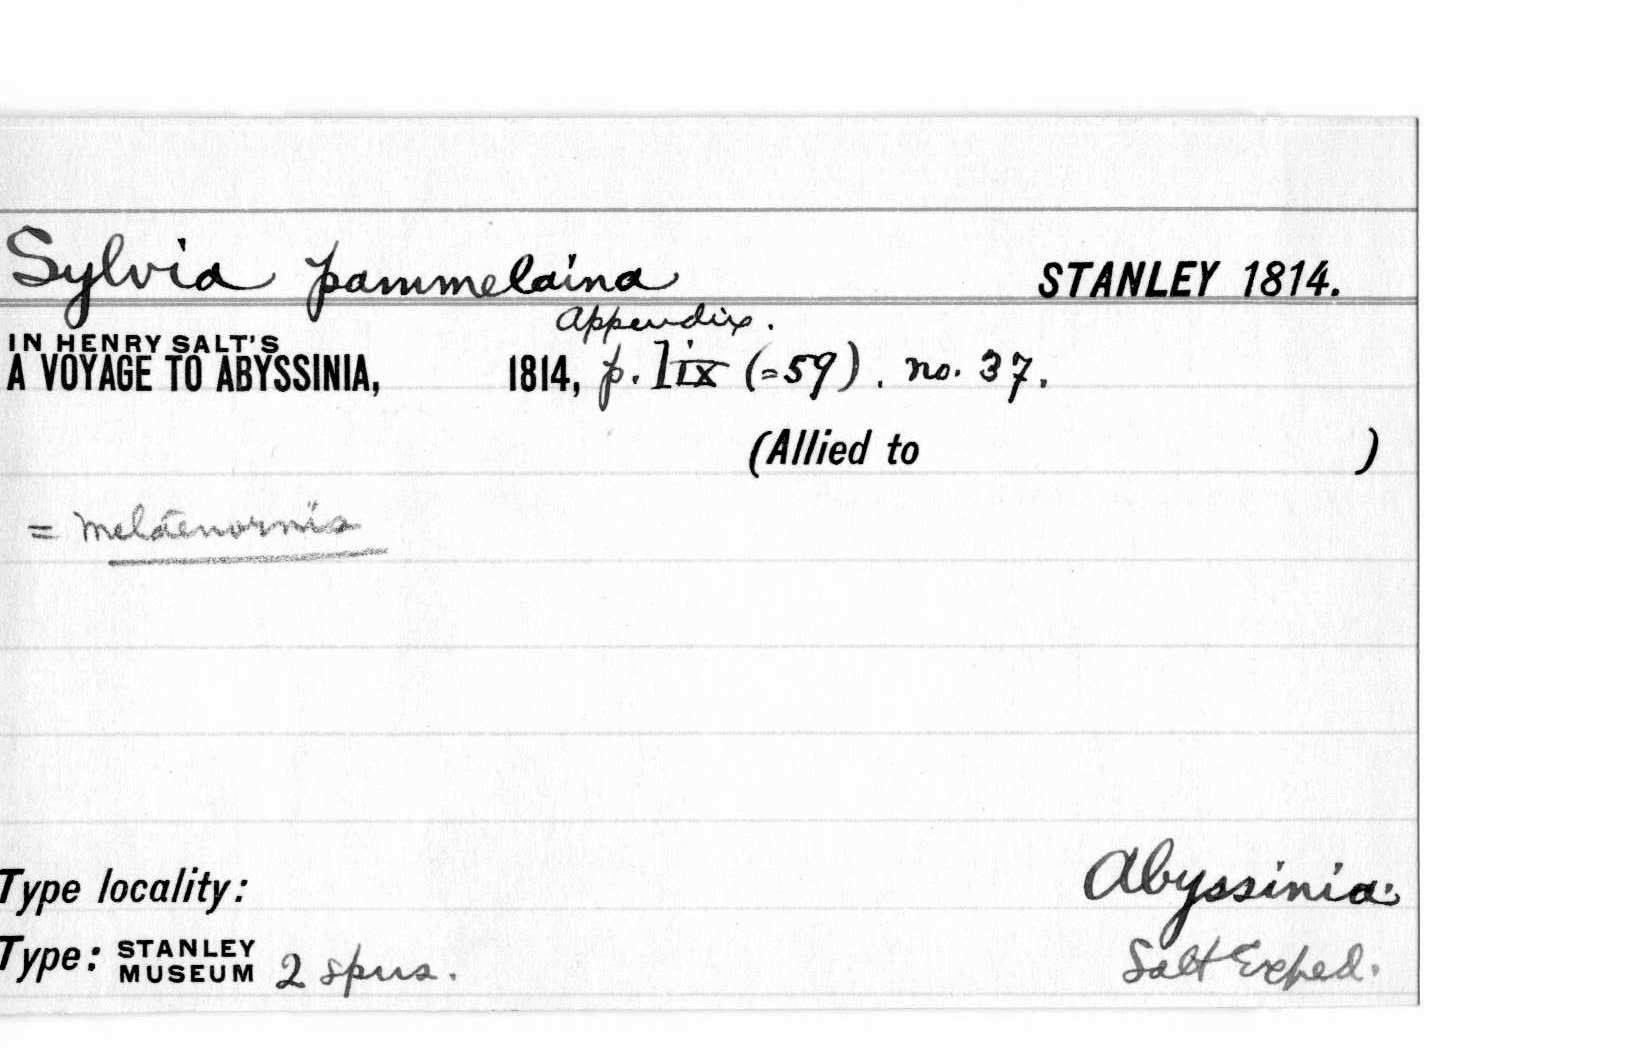 Sylvia pammelaina STANLEY 1814.
Appendix.
IN HENRY SALT'S
A VOYAGE TO ABYSSINIA, 1814, p. lix (=59). no. 37.
(Allied to )
= Melaenornis
Type locality: Abyssinia.
Type: STANLEY MUSEUM 2 spms. Salt Exped.